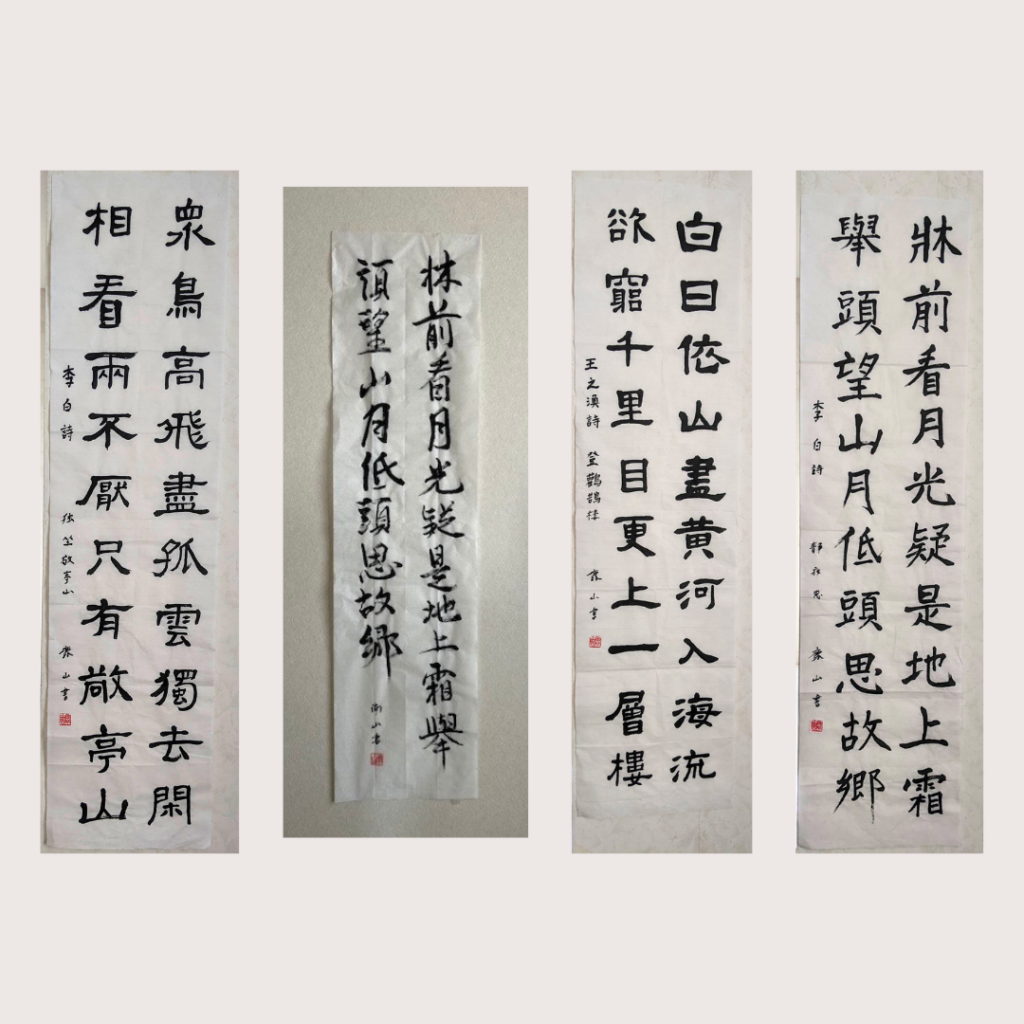 眾鳥高飛盡孤雲獨去閑
相看兩不厭只有敬亭山
李白詩 独坐敬亭山 山書
牀前看月光疑是地上霜舉
頭望山月低頭思故鄉
山書
白日依山盡黃河入海流
欲窮千里目更上一層樓
王之渙詩 登鸛鵲楼 山書
牀前看月光疑是地上霜
舉頭望山月低頭思故鄉
李白詩 靜夜思 山書